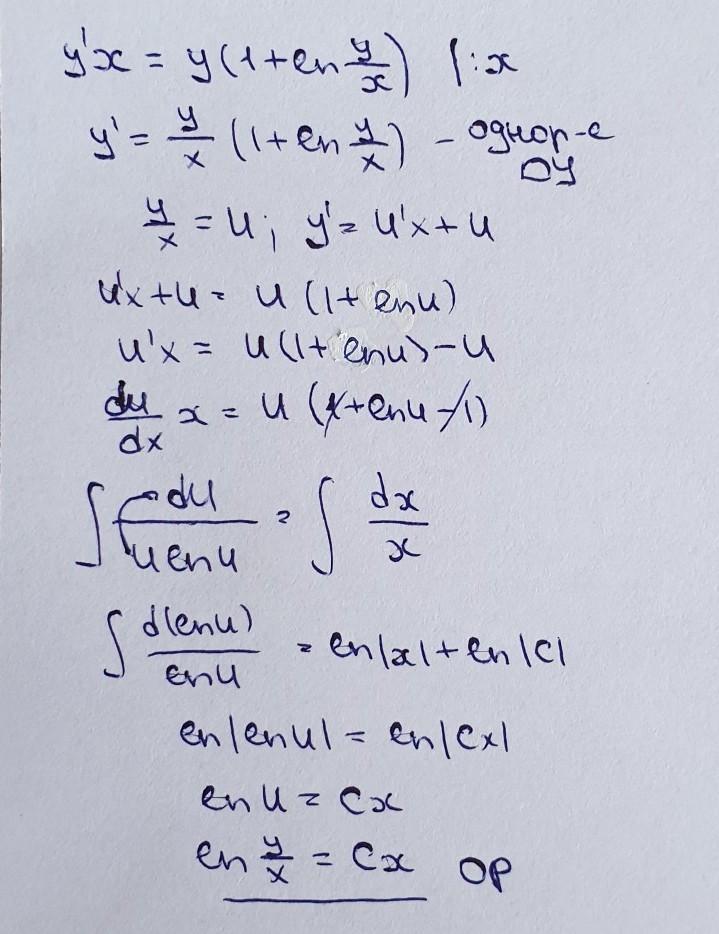 y'x = y(1+ln y/x) |:x
y' = y/x (1+ln y/x) - однор-е ДУ
y/x = u; y' = u'x+u
u'x+u = u(1+ln u)
u'x = u(1+ln u)-u
du/dx x = u(1+ln u-1)
∫ du/(u ln u) = ∫ dx/x
∫ d(ln u)/ln u = ln|x|+ln|C|
ln|ln u| = ln|Cx|
ln u = Cx
ln y/x = Cx ОР